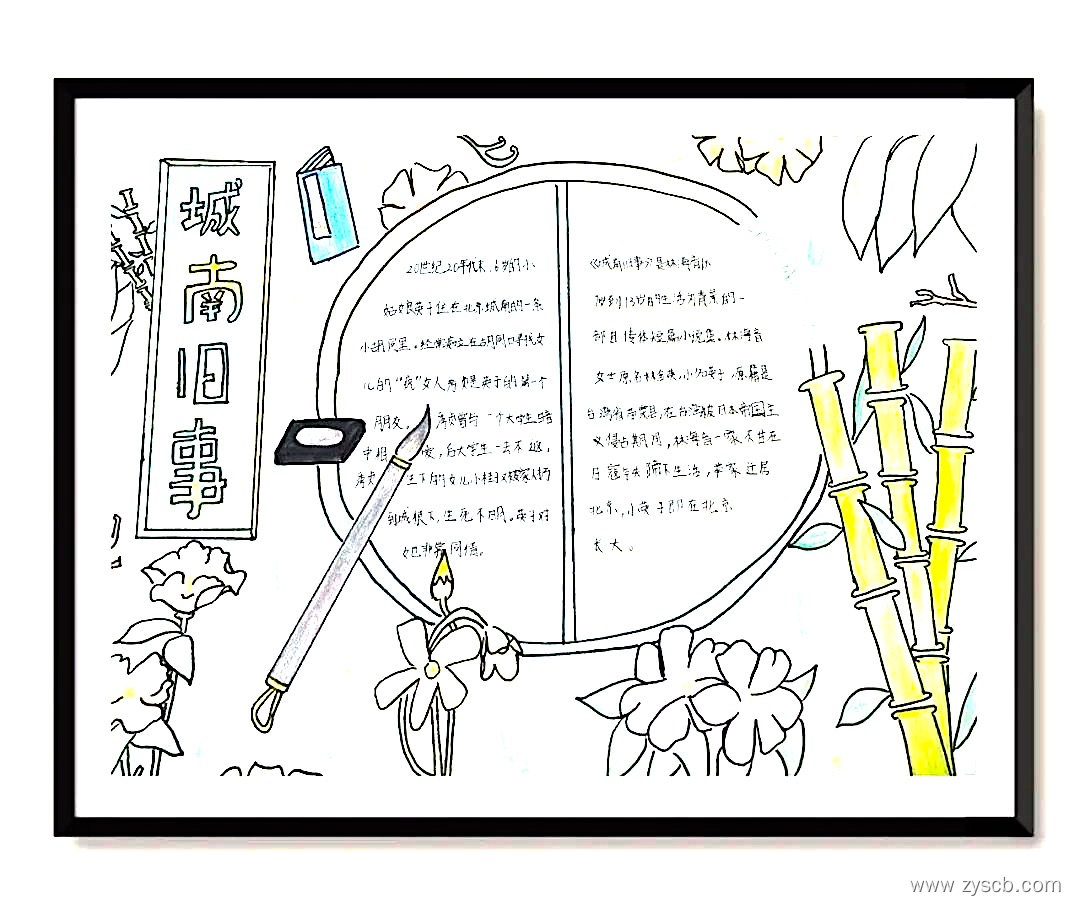 城南旧事
20世纪20年代末,6岁的小
姑娘英子住在北京城南的一条
小胡同里。经常痴立在胡同口寻找女
儿的“疯”女人秀贞是英子的第一个
朋友。秀贞曾与一个大学生暗
中相 爱,后大学生一去不返,
秀贞生下的女儿小桂子又被家人扔
到城根下,生死不明。英子对
她非常同情。
《城南旧事》是林海音以
她到13岁的生活为背景的一
部自传体短篇小说集。林海音
女士原名林含英,小名英子,原籍是
台湾省苗栗县,在台湾被日本帝国主
义侵占期间,林海音一家不甘在
日寇铁蹄下生活,举家迁居
北京,小英子即在北京
长大。
www.zyscb.com